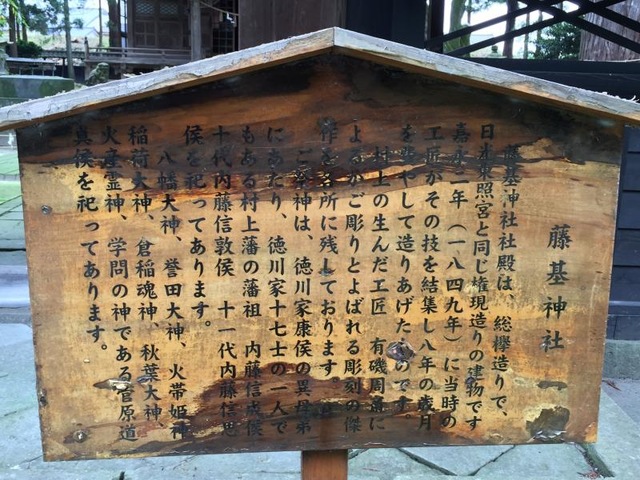 藤基神社
藤基神社社殿は、総欅造りで、
日光東照宮と同じ権現造りの建物です
嘉永二年（一八四九年）に当時の
工匠がその技を結集し八年の歳月
を費やして造りあげたものです
村上の生んだ工匠 有磯周斎に
よるかご彫りとよばれる彫刻の傑
作を各所に残しております。
ご祭神は、徳川家康侯の異母弟
にあたり、徳川家十七士の一人で
もある村上藩の藩祖 内藤信成侯
十代内藤信敦侯 十一代内藤信思
侯を祀ってあります。
八幡大神、誉田大神、火帯姫神
稲荷大神、倉稲魂神、秋葉大神、
火産霊神、学問の神である菅原道
真侯を祀ってあります。